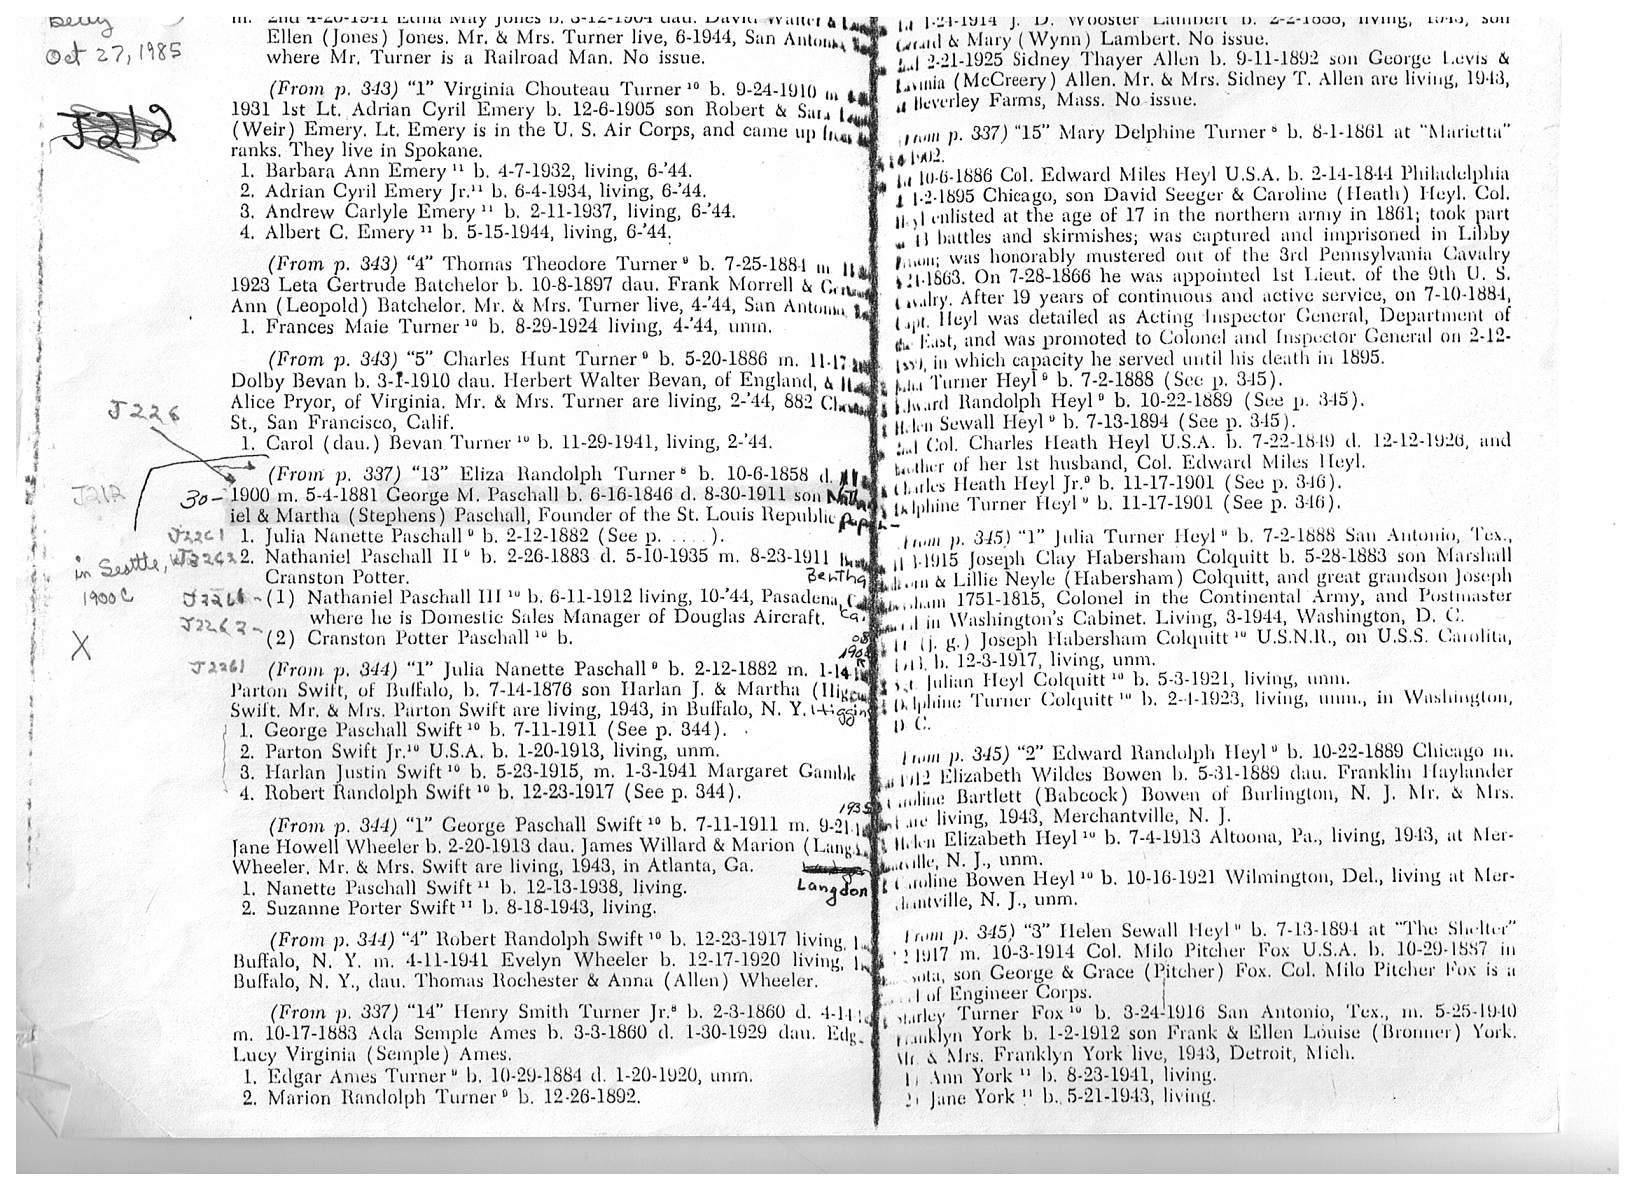 Betty
Oct 27, 1985
J212
m. 2nd 4-20-1941 Edna May Jones b. 3-12-1904 dau. David Walter &
Ellen (Jones) Jones. Mr. & Mrs. Turner live, 6-1944, San Antonio,
where Mr. Turner is a Railroad Man. No issue.
(From p. 343) “1” Virginia Chouteau Turner ¹⁰ b. 9-24-1910 m
1931 1st Lt. Adrian Cyril Emery b. 12-6-1905 son Robert & Sara
(Weir) Emery. Lt. Emery is in the U. S. Air Corps, and came up from
ranks. They live in Spokane.
1. Barbara Ann Emery ¹¹ b. 4-7-1932, living, 6-’44.
2. Adrian Cyril Emery Jr.¹¹ b. 6-4-1934, living, 6-’44.
3. Andrew Carlyle Emery ¹¹ b. 2-11-1937, living, 6-’44.
4. Albert C. Emery ¹¹ b. 5-15-1944, living, 6-’44.
(From p. 343) “4” Thomas Theodore Turner ⁹ b. 7-25-1884 m
1923 Leta Gertrude Batchelor b. 10-8-1897 dau. Frank Morrell &
Ann (Leopold) Batchelor. Mr. & Mrs. Turner live, 4-’44, San Antonio,
1. Frances Maie Turner ¹⁰ b. 8-29-1924 living, 4-’44, unm.
(From p. 343) “5” Charles Hunt Turner ⁹ b. 5-20-1886 m. 11-17
Dolby Bevan b. 3-1-1910 dau. Herbert Walter Bevan, of England, &
Alice Pryor, of Virginia. Mr. & Mrs. Turner are living, 2-’44, 882
St., San Francisco, Calif.
1. Carol (dau.) Bevan Turner ¹⁰ b. 11-29-1941, living, 2-’44.
J226
(From p. 337) “13” Eliza Randolph Turner ⁸ b. 10-6-1858 d.
J212
30- 1900 m. 5-4-1881 George M. Paschall b. 6-16-1846 d. 8-30-1911 son Nathan
iel & Martha (Stephens) Paschall, Founder of the St. Louis Republic paper-
J2261 1. Julia Nanette Paschall ⁹ b. 2-12-1882 (See p. . . . . ).
J2262 2. Nathaniel Paschall II ⁹ b. 2-26-1883 d. 5-10-1935 m. 8-23-1911
Cranston Potter. Bertha
in Seattle, W
1900C
(1) Nathaniel Paschall III ¹⁰ b. 6-11-1912 living, 10-’44, Pasadena,
where he is Domestic Sales Manager of Douglas Aircraft. Ca.
J2262-
(2) Cranston Potter Paschall ¹⁰ b.
X
08
1908
J2261
(From p. 344) “1” Julia Nanette Paschall ⁹ b. 2-12-1882 m. 1-14
Parton Swift, of Buffalo, b. 7-14-1876 son Harlan J. & Martha (
Swift. Mr. & Mrs. Parton Swift are living, 1943, in Buffalo, N. Y. Higgin
1. George Paschall Swift ¹⁰ b. 7-11-1911 (See p. 344).
2. Parton Swift Jr.¹⁰ U.S.A. b. 1-20-1913, living, unm.
3. Harlan Justin Swift ¹⁰ b. 5-23-1915, m. 1-3-1941 Margaret Gamble
4. Robert Randolph Swift ¹⁰ b. 12-23-1917 (See p. 344).
1935
(From p. 344) “1” George Paschall Swift ¹⁰ b. 7-11-1911 m. 9-21
Jane Howell Wheeler b. 2-20-1913 dau. James Willard & Marion (Lang
Wheeler. Mr. & Mrs. Swift are living, 1943, in Atlanta, Ga.
Langdon
1. Nanette Paschall Swift ¹¹ b. 12-13-1938, living.
2. Suzanne Porter Swift ¹¹ b. 8-18-1943, living.
(From p. 344) “4” Robert Randolph Swift ¹⁰ b. 12-23-1917 living,
Buffalo, N. Y. m. 4-11-1941 Evelyn Wheeler b. 12-17-1920 living,
Buffalo, N. Y., dau. Thomas Rochester & Anna (Allen) Wheeler.
(From p. 337) “14” Henry Smith Turner Jr.⁸ b. 2-3-1860 d. 4-14
m. 10-17-1883 Ada Semple Ames b. 3-3-1860 d. 1-30-1929 dau. Edg.
Lucy Virginia (Semple) Ames.
1. Edgar Ames Turner ⁹ b. 10-29-1884 d. 1-20-1920, unm.
2. Marion Randolph Turner ⁹ b. 12-26-1892.
1-24-1914 J. D. Wooster Lambert b. 2-2-1888, living, 1943, son
& Mary (Wynn) Lambert. No issue.
2-21-1925 Sidney Thayer Allen b. 9-11-1892 son George Levis &
(McCreery) Allen. Mr. & Mrs. Sidney T. Allen are living, 1943,
Beverley Farms, Mass. No issue.
From p. 337) “15” Mary Delphine Turner ⁸ b. 8-1-1861 at “Marietta”
1902.
10-6-1886 Col. Edward Miles Heyl U.S.A. b. 2-14-1844 Philadelphia
1-2-1895 Chicago, son David Seeger & Caroline (Heath) Heyl. Col.
Heyl enlisted at the age of 17 in the northern army in 1861; took part
battles and skirmishes; was captured and imprisoned in Libby
was honorably mustered out of the 3rd Pennsylvania Cavalry
1863. On 7-28-1866 he was appointed 1st Lieut. of the 9th U. S.
Cavalry. After 19 years of continuous and active service, on 7-10-1884,
Capt. Heyl was detailed as Acting Inspector General, Department of
the East, and was promoted to Colonel and Inspector General on 2-12-
in which capacity he served until his death in 1895.
Turner Heyl ⁹ b. 7-2-1888 (See p. 345).
Edward Randolph Heyl ⁹ b. 10-22-1889 (See p. 345).
Helen Sewall Heyl ⁹ b. 7-13-1894 (See p. 345).
Col. Charles Heath Heyl U.S.A. b. 7-22-1849 d. 12-12-1926, and
brother of her 1st husband, Col. Edward Miles Heyl.
Charles Heath Heyl Jr.⁹ b. 11-17-1901 (See p. 346).
Delphine Turner Heyl ⁹ b. 11-17-1901 (See p. 346).
From p. 345) “1” Julia Turner Heyl ⁹ b. 7-2-1888 San Antonio, Tex.,
1915 Joseph Clay Habersham Colquitt b. 5-28-1883 son Marshall
& Lillie Neyle (Habersham) Colquitt, and great grandson Joseph
1751-1815, Colonel in the Continental Army, and Postmaster
in Washington’s Cabinet. Living, 3-1944, Washington, D. C.
(j. g.) Joseph Habersham Colquitt ¹⁰ U.S.N.R., on U.S.S. Carolita,
b. 12-3-1917, living, unm.
Julian Heyl Colquitt ¹⁰ b. 5-3-1921, living, unm.
Delphine Turner Colquitt ¹⁰ b. 2-4-1923, living, unm., in Washington,
D. C.
From p. 345) “2” Edward Randolph Heyl ⁹ b. 10-22-1889 Chicago m.
Elizabeth Wildes Bowen b. 5-31-1889 dau. Franklin Haylander
Caroline Bartlett (Babcock) Bowen of Burlington, N. J. Mr. & Mrs.
living, 1943, Merchantville, N. J.
Helen Elizabeth Heyl ¹⁰ b. 7-4-1913 Altoona, Pa., living, 1943, at Mer-
N. J., unm.
Caroline Bowen Heyl ¹⁰ b. 10-16-1921 Wilmington, Del., living at Mer-
chantville, N. J., unm.
From p. 345) “3” Helen Sewall Heyl ⁹ b. 7-13-1894 at “The Shelter”
1917 m. 10-3-1914 Col. Milo Pitcher Fox U.S.A. b. 10-29-1887 in
son George & Grace (Pitcher) Fox. Col. Milo Pitcher Fox is a
of Engineer Corps.
Turner Fox ¹⁰ b. 3-24-1916 San Antonio, Tex., m. 5-25-1940
Franklyn York b. 1-2-1912 son Frank & Ellen Louise (Bronner) York.
Mr. & Mrs. Franklyn York live, 1943, Detroit, Mich.
1) Ann York ¹¹ b. 8-23-1941, living.
2) Jane York ¹¹ b. 5-21-1943, living.